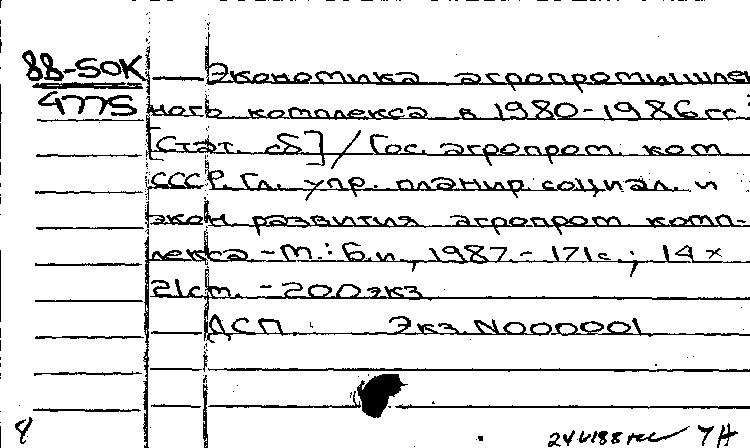 88-50К
4775
Экономика агропромышлен
ного комплекса в 1980-1986гг:
[Стат. сб]/Гос. агропром. ком.
СССР. Гл. упр. планир. социал. и
экон. развития агропром. комп-
лекса.-М.: Б.и., 1987.- 171с.; 14×
21см. -200экз.
ДСП. Экз. N000001.
8